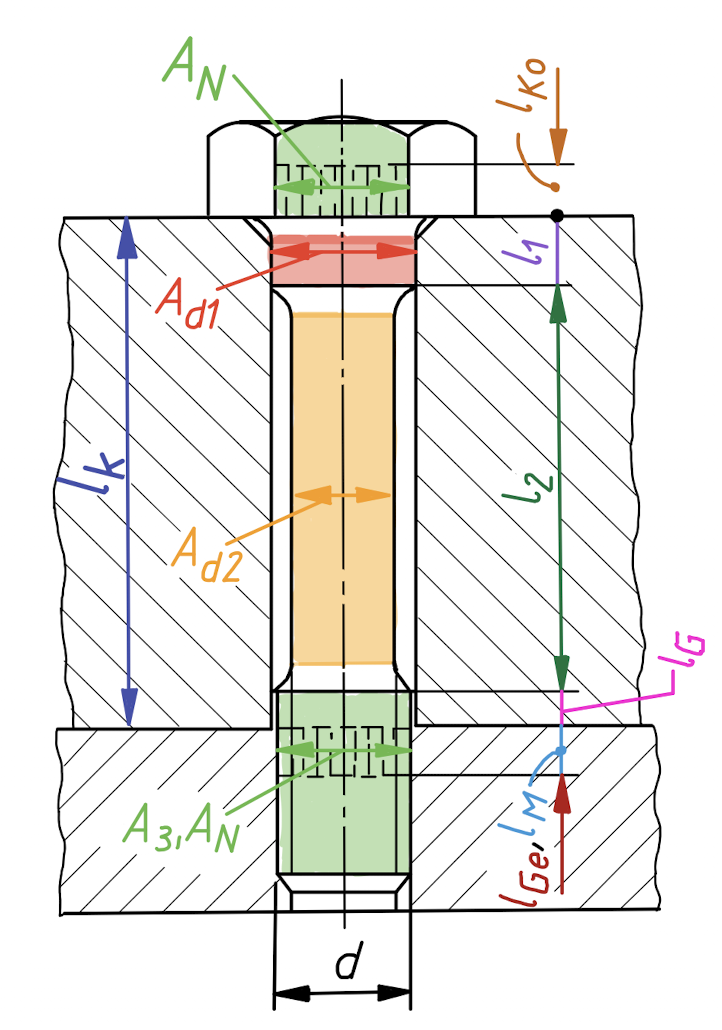 A_N
l_Ko
l_1
A_d1
l_k
l_2
A_d2
l_G
A_3, A_N
l_Ge, l_M
d